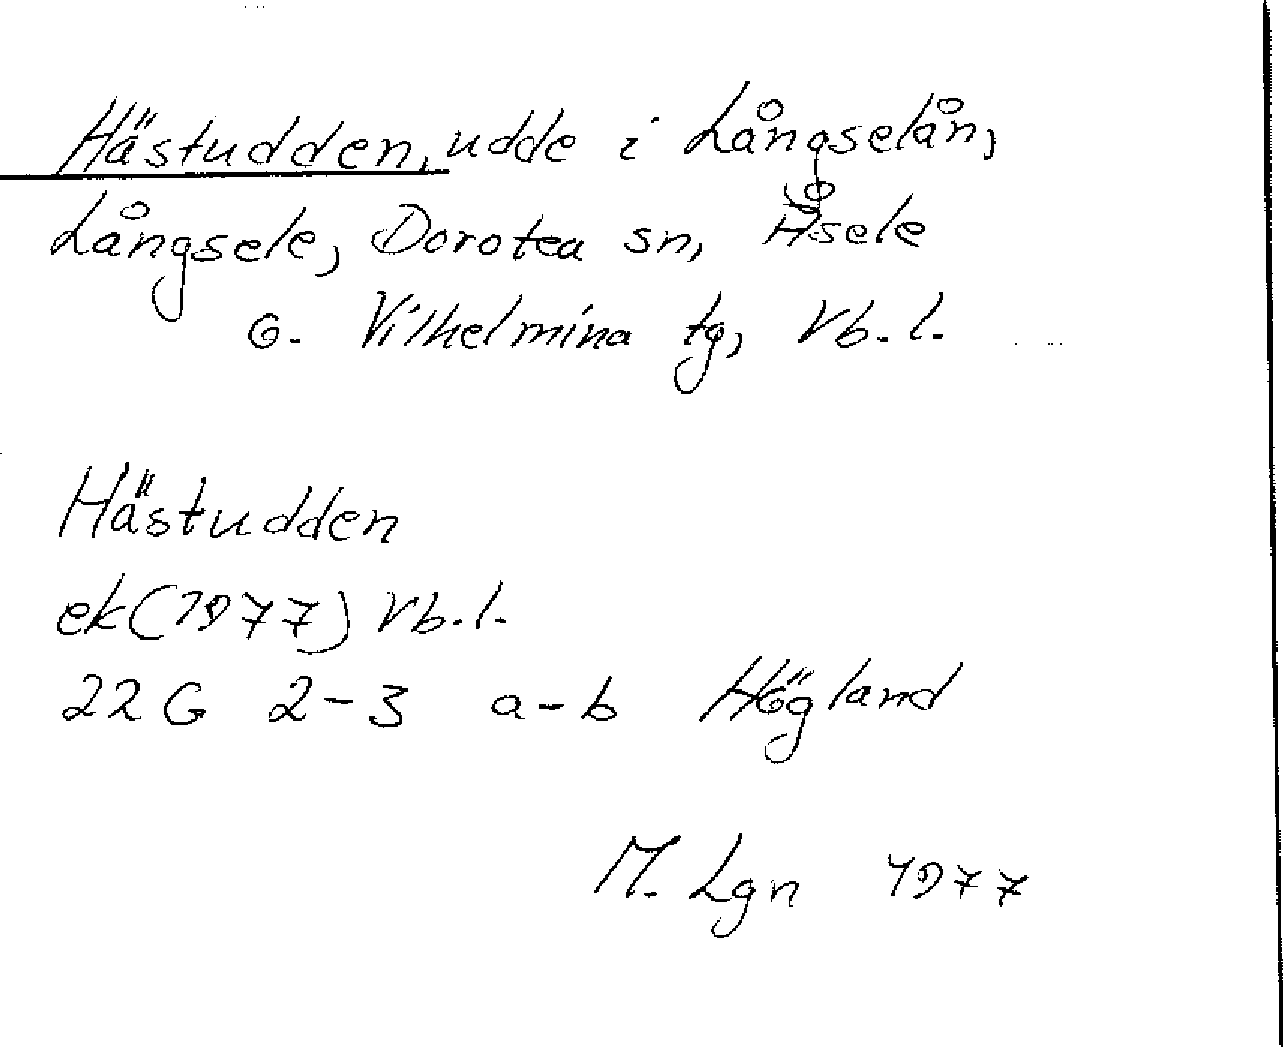 Hästudden, udde i Långselån,
Långsele, Dorotea sn, Åsele
o. Vilhelmina tg, Vb. l.
Hästudden
ek (1977) Vb. l.
22 G 2-3 a-b Högland
M. Lgn 1977